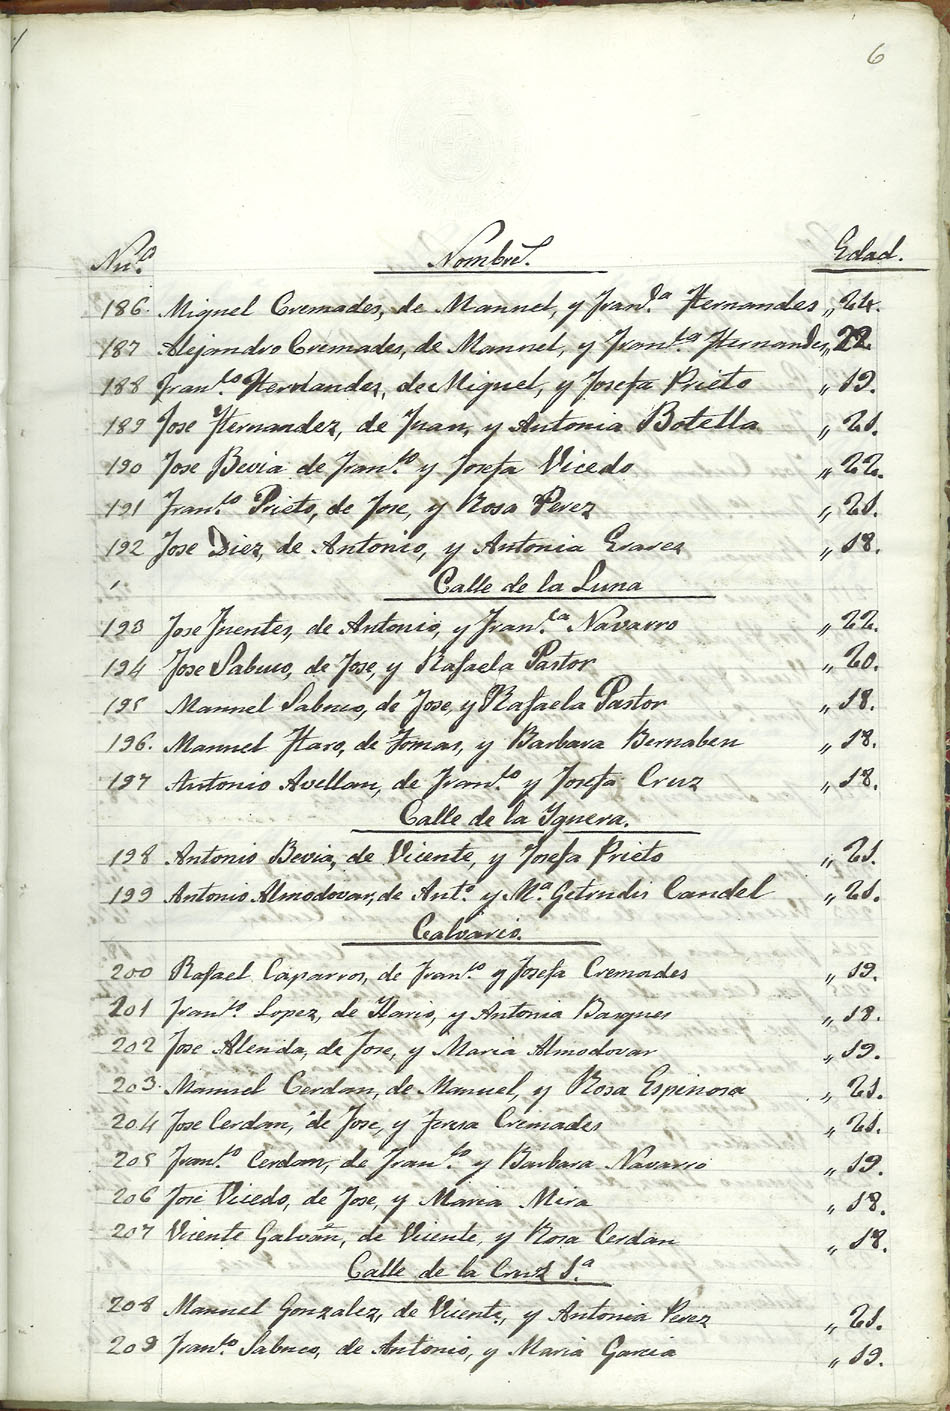 6
Nu.º Nombres. Edad.
186. Miguel Cremades, de Manuel, y Fran.ca Hernandes „ 24.
187 Alejandro Cremades, de Manuel, y Fran.ca Hernandes „ 22.
188 Fran.co Hernandez, de Miguel, y Josefa Prieto „ 19.
189 Jose Hernandez, de Juan, y Antonia Botella „ 21.
190 Jose Bevia de Fran.co y Josefa Vicedo „ 22.
191 Fran.co Prieto, de Jose, y Rosa Perez „ 21.
192 Jose Diez, de Antonio, y Antonia „ 18.
Calle de la Luna
193 Jose Fuentes, de Antonio, y Fran.ca Navarro „ 22.
194 Jose Sabuco, de Jose, y Rafaela Pastor „ 20.
195 Manuel Sabuco, de Jose, y Rafaela Pastor „ 18.
196. Manuel Haro, de Tomas, y Barbara Bernabeu „ 18.
197 Antonio Avellan, de Fran.co y Josefa Cruz „ 18.
Calle de la Yguera.
198 Antonio Bevia, de Vicente, y Josefa Prieto „ 21.
199 Antonio Almodovar, de Ant.º y M.ª Getrudis Candel „ 21.
Calvario.
200 Rafael Caparros, de Fran.co y Josefa Cremades „ 19.
201 Fran.co Lopez, de Ylario, y Antonia Basques „ 18.
202 Jose Alenda, de Jose, y Maria Almodovar „ 19.
203. Manuel Cerdan, de Manuel, y Rosa Espinosa „ 21.
204 Jose Cerdan, de Jose, y Teresa Cremades „ 21.
205 Fran.co Cerdan, de Fran.co y Barbara Navarro „ 19.
206 José Vicedo, de Jose, y Maria Mira „ 18.
207 Vicente Galvañ, de Vicente, y Rosa Cerdan „ 18.
Calle de la Cruz 1.ª
208 Manuel Gonzalez, de Vicente, y Antonia Perez „ 21.
209 Fran.co Sabuco, de Antonio, y Maria Garcia „ 19.